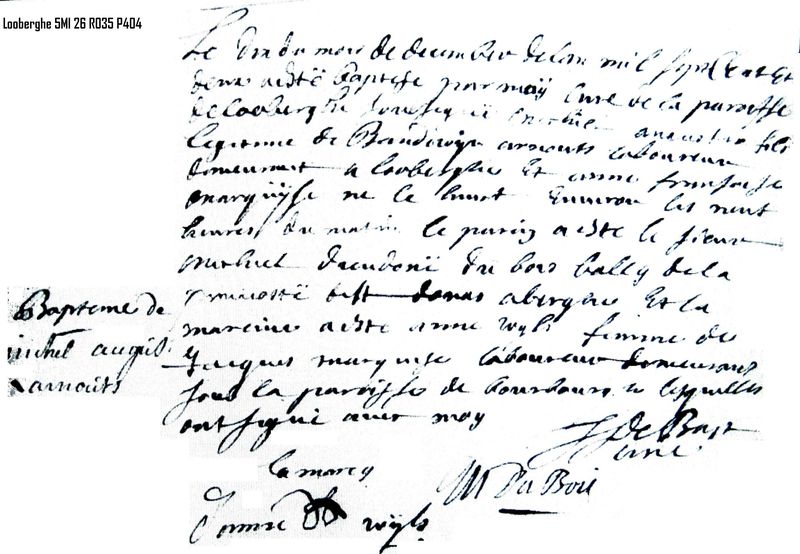 Looberghe 5MI 26 R035 P404
Le dix du mois de decembre de lan mil sept cent et
deux a esté baptise par moÿ Cure de la paroisse
de looberghe soussigné michel augustin fils
legitime de Baudewyn arnouts laboureur
demeurant a looberghe Et anne francoise
marquise ne le huit Environ les neuf
heures du matin le parin a este le sieur
michiel dieudonné du bois bally de la
est abergue Et la
mareine a este anne wyls femme de
Jacques marquise laboureur demeurant
sous la paroisse de bourbourg lesquelles
ont signé avec moy
Bapteme de
michel augus
arnouts
J de Bast
Curé
la marcq
M Du Bois
Janne wyls